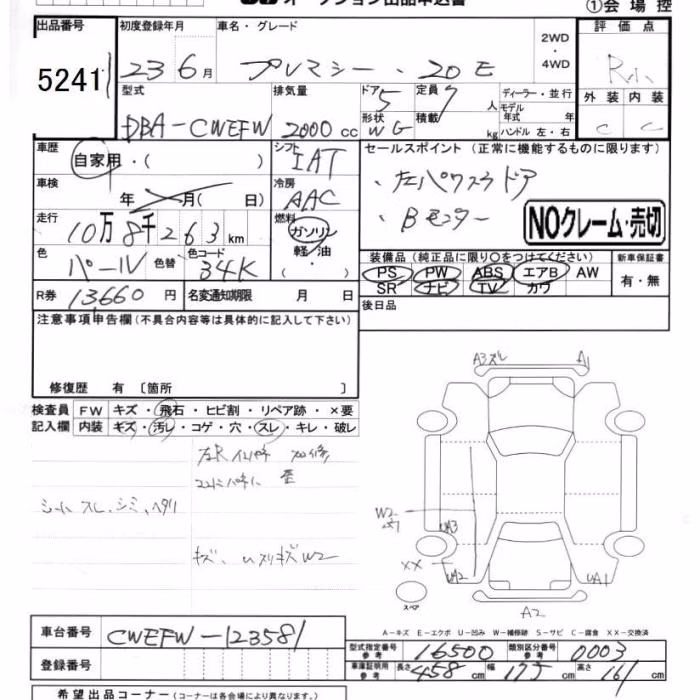 オークション出品申込書
①会場控
出品番号 初度登録年月 車名・グレード 2WD・4WD 評価点
5241 23 6月 プレマシー・20E
型式 排気量 ドア 5 定員 7人 ディーラー・並行 外装 内装
DBA-CWEFW 2000cc 形状 WG 積載 kg モデル年式 年 ハンドル 左・右 C C
車歴 自家用・( ) シフト IAT セールスポイント (正常に機能するものに限ります)
車検 年 月( 日) 冷房 AAC ・左パワスラドア
走行 10万8千263km 燃料 ガソリン・軽油・( ) ・Bモニター NOクレーム・売切
色 パール 色替 色コード 34K 装備品 (純正品に限り○をつけてください) 新車保証書
PS PW ABS エアB AW 有・無
SR ナビ TV カワ
R券 13,660円 名変通知期限 月 日 後日品
注意事項申告欄 (不具合内容等は具体的に記入して下さい)
修復歴 有 〔箇所 〕
検査員記入欄 FW キズ・飛石・ヒビ割・リペア跡・×要
内装 キズ・汚レ・コゲ・穴・スレ・キレ・破レ
シートスレ、シミ、ヘタリ
A3スレ A1
W2
UA3
XX
UA2 UA1
スペア
A2
A-キズ E-エクボ U-凹み W-補修跡 S-サビ C-腐食 XX-交換済
車台番号 CWEFW-123581
登録番号
型式指定番号 参考 16500 類別区分番号 参考 0003
車庫証明用 参考 長さ 458cm 幅 175cm 高さ 161cm
希望出品コーナー (コーナーは各会場により異なります。)